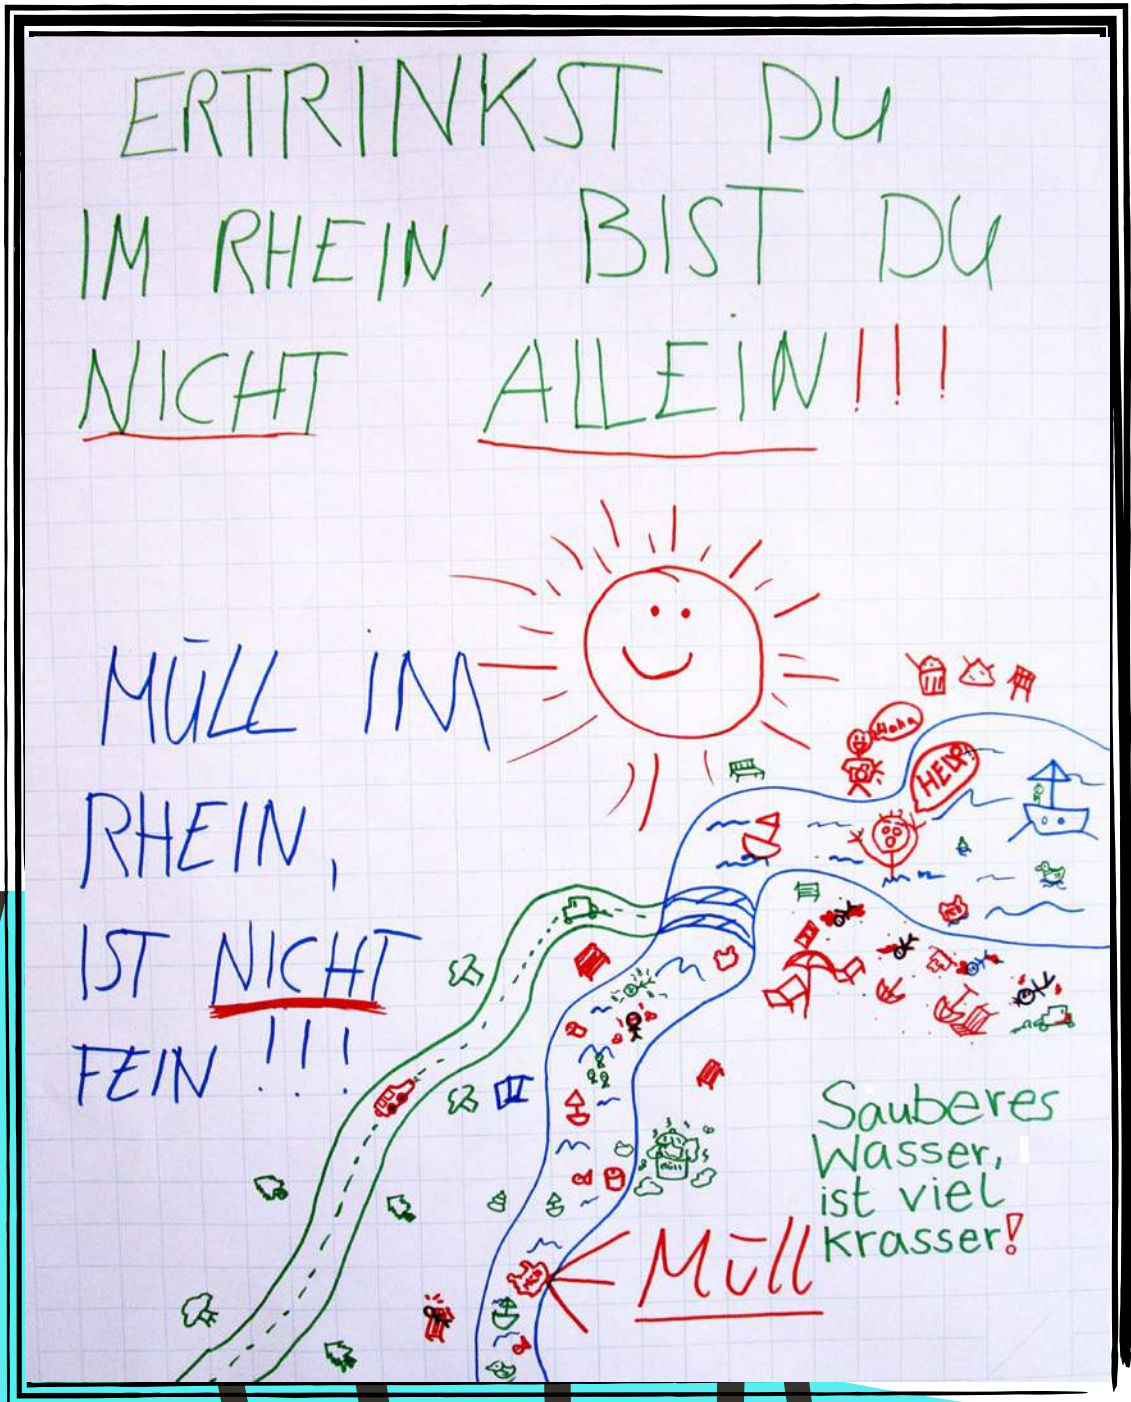 ERTRINKST DU
IM RHEIN, BIST DU
NICHT ALLEIN!!!
MÜLL IM
RHEIN,
IST NICHT
FEIN!!!
Haha
HELP!
Müll
Sauberes
Wasser,
ist viel
krasser!
Müll